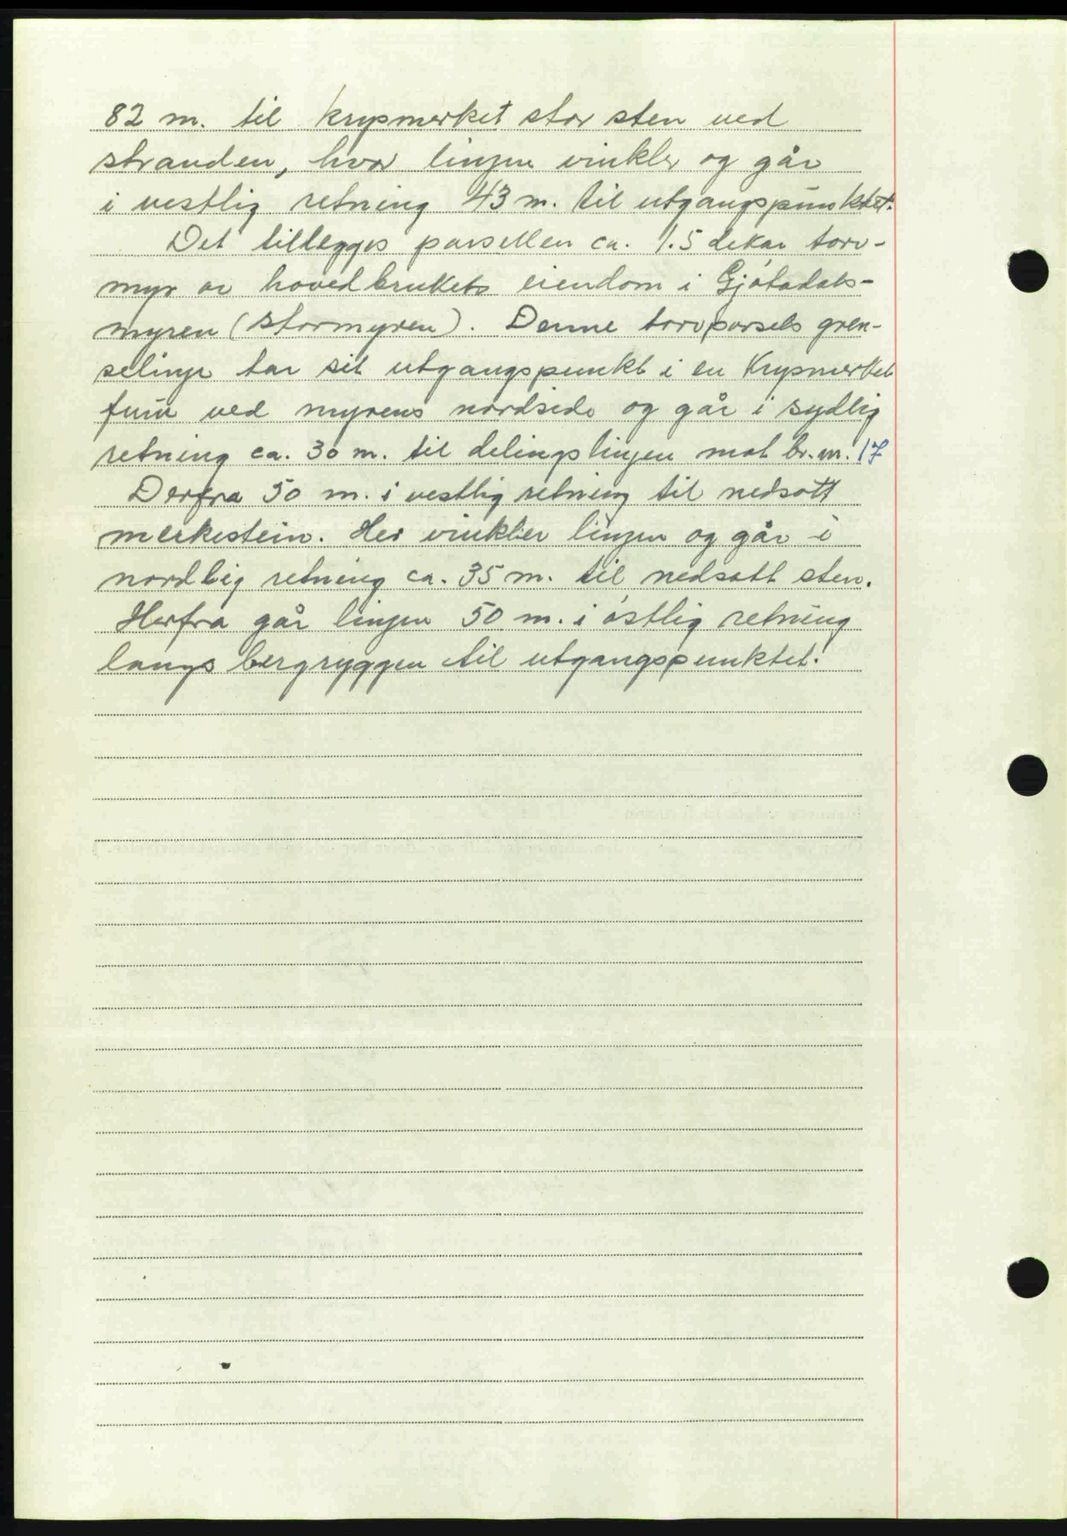 82 m. til krysmerket stor sten ved
stranden, hvor linjen vinkler og går
i vestlig retning 43 m. til utgangspunktet.
Det tillegges parsellen ca. 1.5 dekar torv-
myr av hovedbrukets eiendom i Gjótadals-
myren (Stormyren). Denne torvparsels gren-
selinje tar sit utgangspunkt i en Krysmerket
furu ved myrens nordside og går i sydlig
retning ca. 30 m. til delingslinjen mot br. nr. 17
Derfra 50 m. i vestlig retning til nedsatt
merkestein. Her vinkler linjen og går i
nordlig retning ca. 35 m. til nedsatt sten.
Herfra går linjen 50 m. i óstlig retning
langs bergryggen til utgangspunktet.